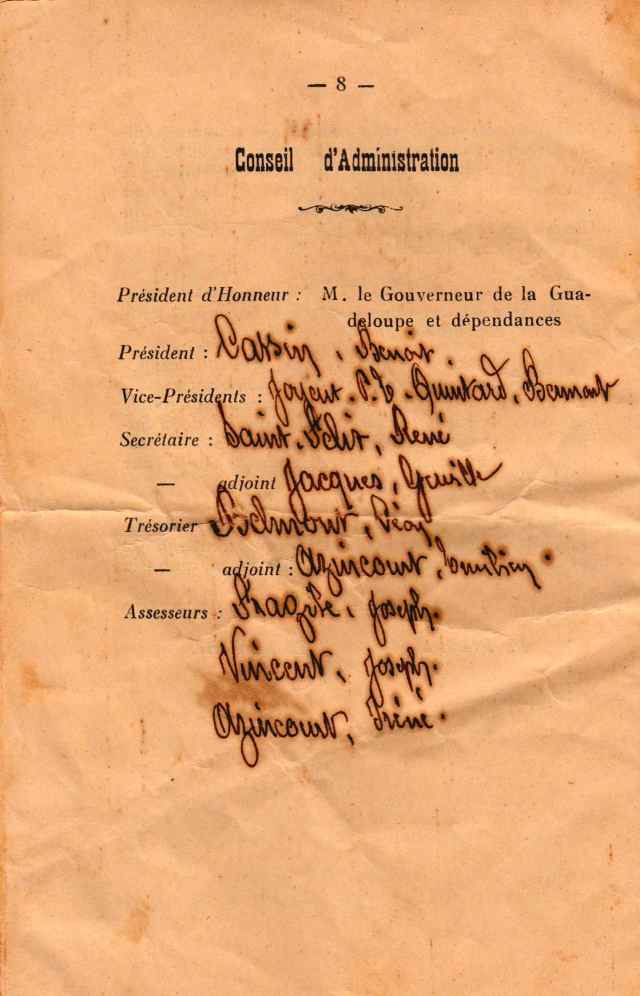 — 8 —
Conseil d'Administration
Président d'Honneur : M. le Gouverneur de la Gua-
deloupe et dépendances
Président : Cassin, Benoit
Vice-Présidents : Quintard,
Secrétaire : Saint-Félix, René
— adjoint Jacques,
Trésorier Belmont, Léon
— adjoint : Azincourt,
Assesseurs : Joseph.
Vincent, Joseph.
Azincourt, Iréné.